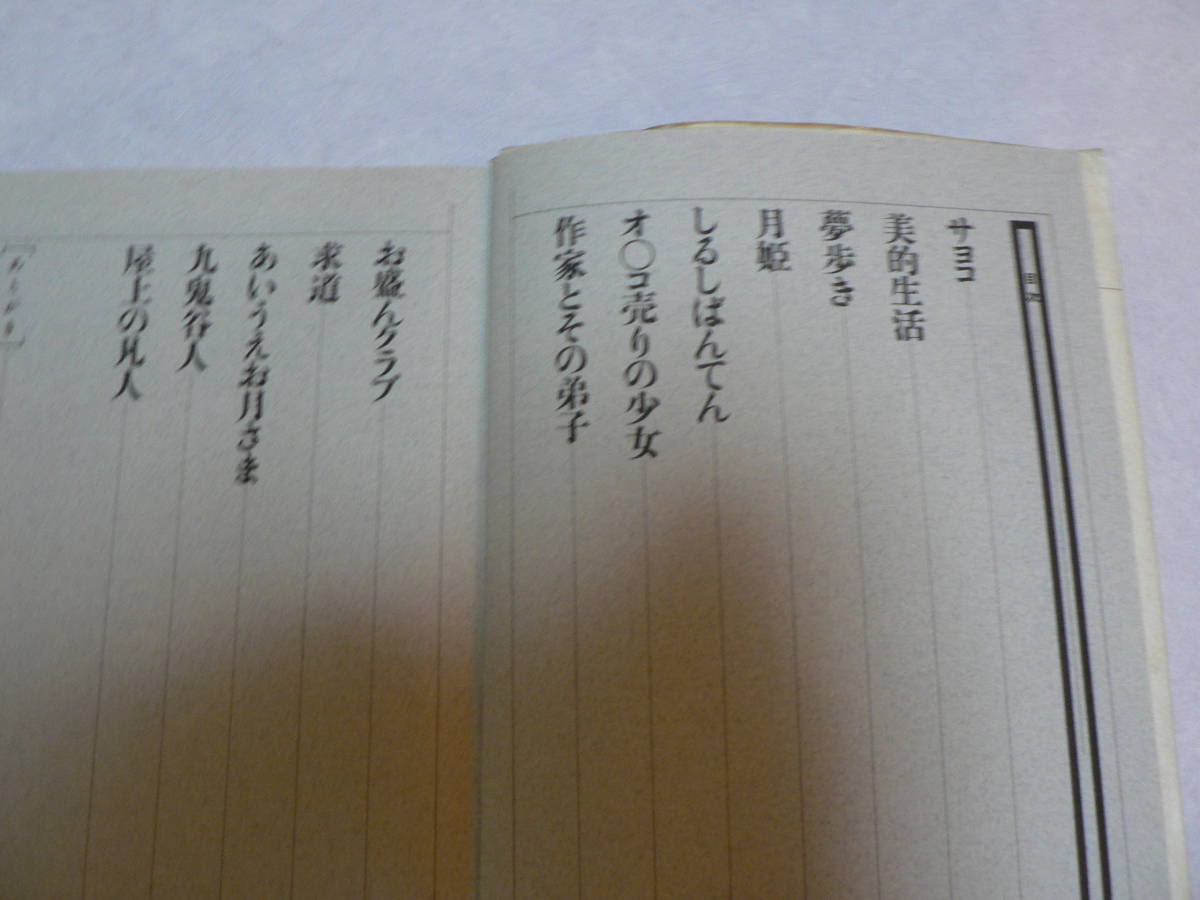 目次
サヨコ
美的生活
夢歩き
月姫
しるしばんてん
オ〇コ売りの少女
作家とその弟子
お盛んクラブ
求道
あいうえお月さま
九鬼谷人
屋上の凡人